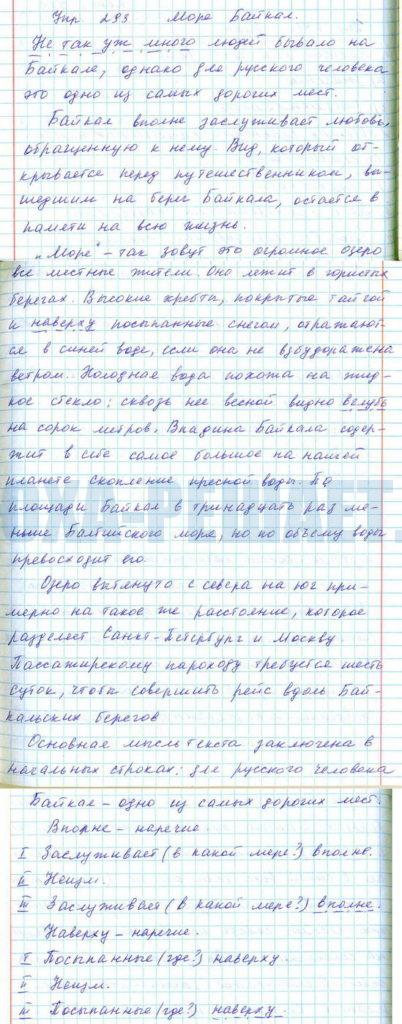 Упр 293 Море Байкал.
Не так уж много людей бывало на
Байкале, однако для русского человека
это одно из самых дорогих мест.
Байкал вполне заслуживает любовь,
обращенную к нему. Вид, который от-
крывается перед путешественником, вы-
шедшим на берег Байкала, остаётся в
памяти на всю жизнь.
„Море" – так зовут это огромное озеро
все местные жители. Оно лежит в гористых
берегах. Высокие хребты, покрытые тайгой
и наверху посыпанные снегом, отражают-
ся в синей воде, если она не взбудоражена
ветром. Холодная вода похожа на жид-
кое стекло: сквозь нее весной видно вглубь
на сорок метров. Впадина Байкала содер-
жит в себе самое большое на нашей
планете скопление пресной воды. По
площади Байкал в тринадцать раз ме-
ньше Балтийского моря, но по объему воды
превосходит его.
Озеро вытянуто с севера на юг при-
мерно на такое же расстояние, которое
разделяет Санкт-Петербург и Москву.
Пассажирскому пароходу требуется шесть
суток, чтобы совершить рейс вдоль Бай-
кальских берегов
Основная мысль текста заключена в
начальных строках: для русского человека
Байкал – одно из самых дорогих мест.
Вполне – наречие.
I Заслуживает (в какой мере?) вполне.
II Неизм.
III Заслуживает (в какой мере?) вполне.
Наверху – наречие.
I Посыпанные (где?) наверху.
II Неизм.
III Посыпанные (где?) наверху.